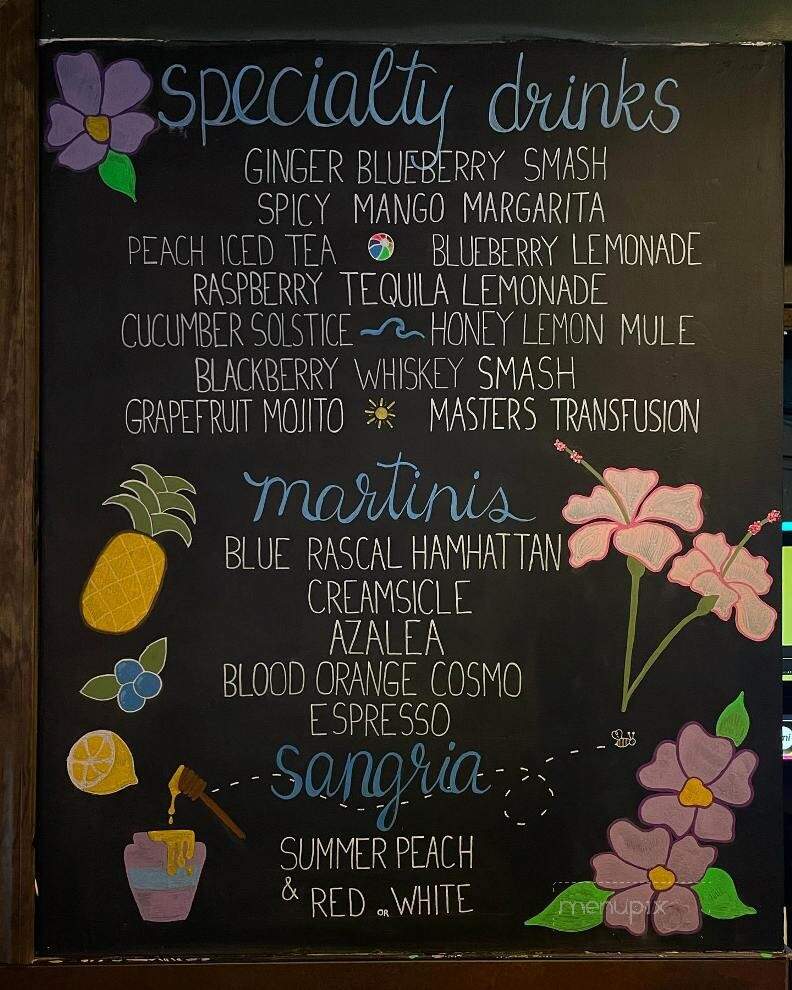 specialty drinks
GINGER BLUEBERRY SMASH
SPICY MANGO MARGARITA
PEACH ICED TEA BLUEBERRY LEMONADE
RASPBERRY TEQUILA LEMONADE
CUCUMBER SOLSTICE HONEY LEMON MULE
BLACKBERRY WHISKEY SMASH
GRAPEFRUIT MOJITO MASTERS TRANSFUSION
martinis
BLUE RASCAL HAMHATTAN
CREAMSICLE
AZALEA
BLOOD ORANGE COSMO
ESPRESSO
sangria
SUMMER PEACH
& RED OR WHITE
menupix